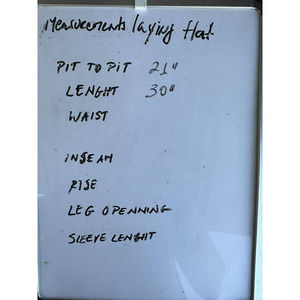 Measurements laying flat
PIT TO PIT 21"
LENGHT 30"
WAIST
INSEAM
RISE
LEG OPENNING
SLEEVE LENGHT